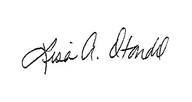 Lisa A. Otondo